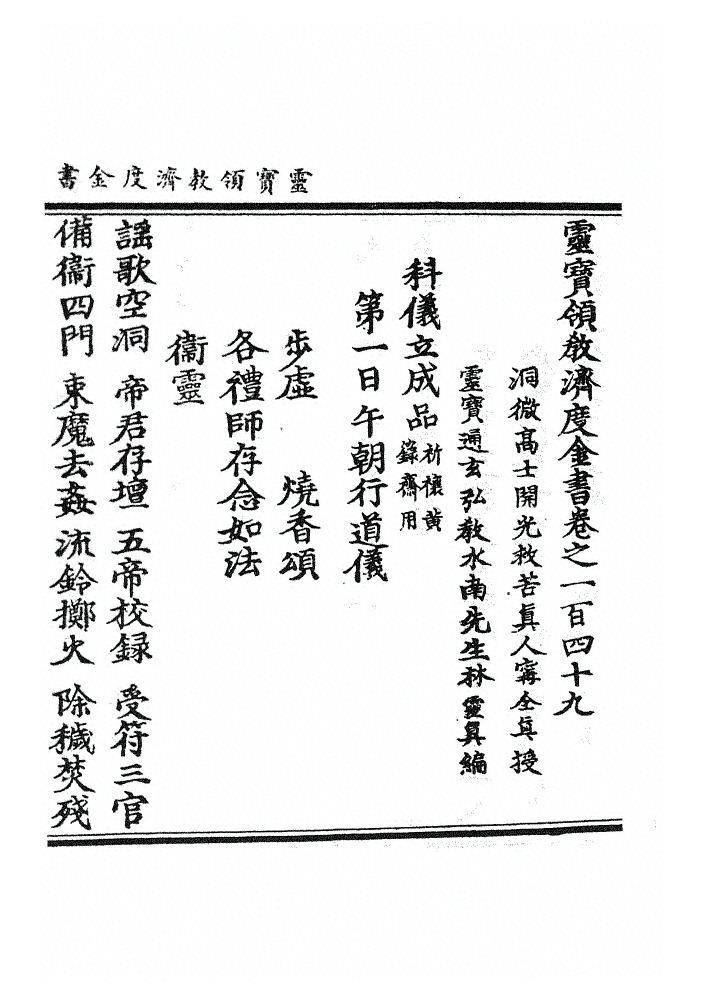 靈寶領教濟度金書
靈寶領教濟度金書卷之一百四十九
洞微高士開光救苦真人寗全真授
靈寶通玄弘教水南先生林靈真編
科儀立成品祈禳黃籙齋用
第一日午朝行道儀
步虛 燒香頌
各禮師存念如法
衞靈
謡歌空洞 帝君存壇 五帝校録 受符三官
備衞四門 束魔去姦 流鈴擲火 除穢焚殘